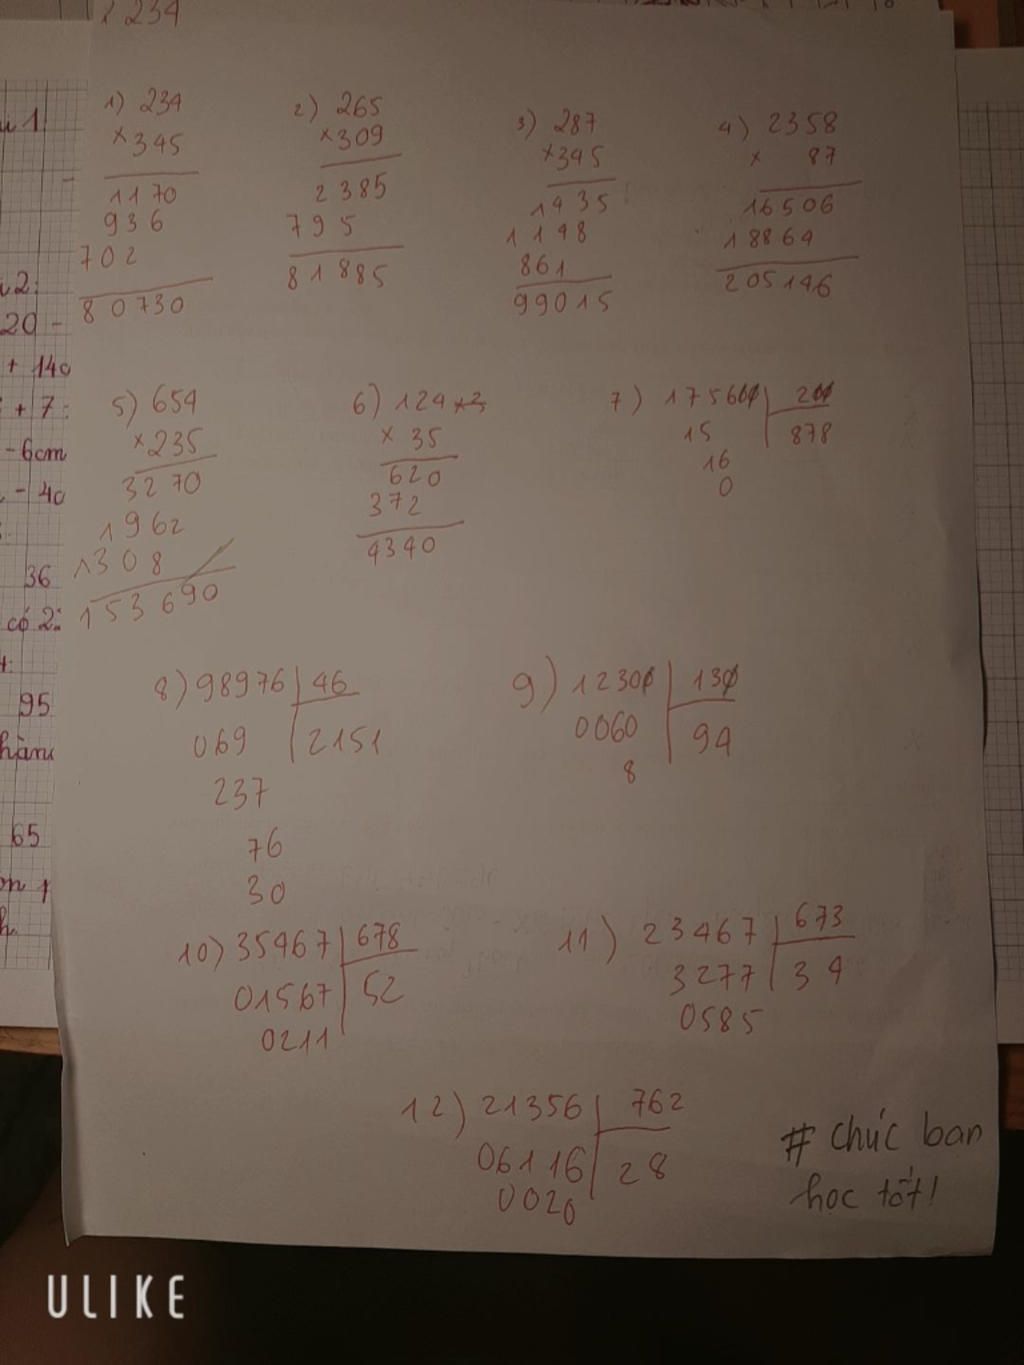 x 234
1) 234
×345
1170
936
702
80730
2) 265
×309
2385
795
81885
3) 287
×345
1435
1148
861
99015
4) 2358
× 87
16506
18864
205146
5) 654
×235
3270
1962
1308
153690
6) 124
× 35
620
372
4340
7) 175600 200
15 878
16
0
8) 98976 46
069 2151
237
76
30
9) 12300 130
0060 94
8
10) 35467 678
01567 52
0211
11) 23467 673
3277 34
0585
12) 21356 762
06116 28
0020
# chúc bạn
học tốt!
u 1
2:
20 -
+ 140
+ 7:
- 6cm
- 40
36
có 2:
95
hàm
65
ULIKE